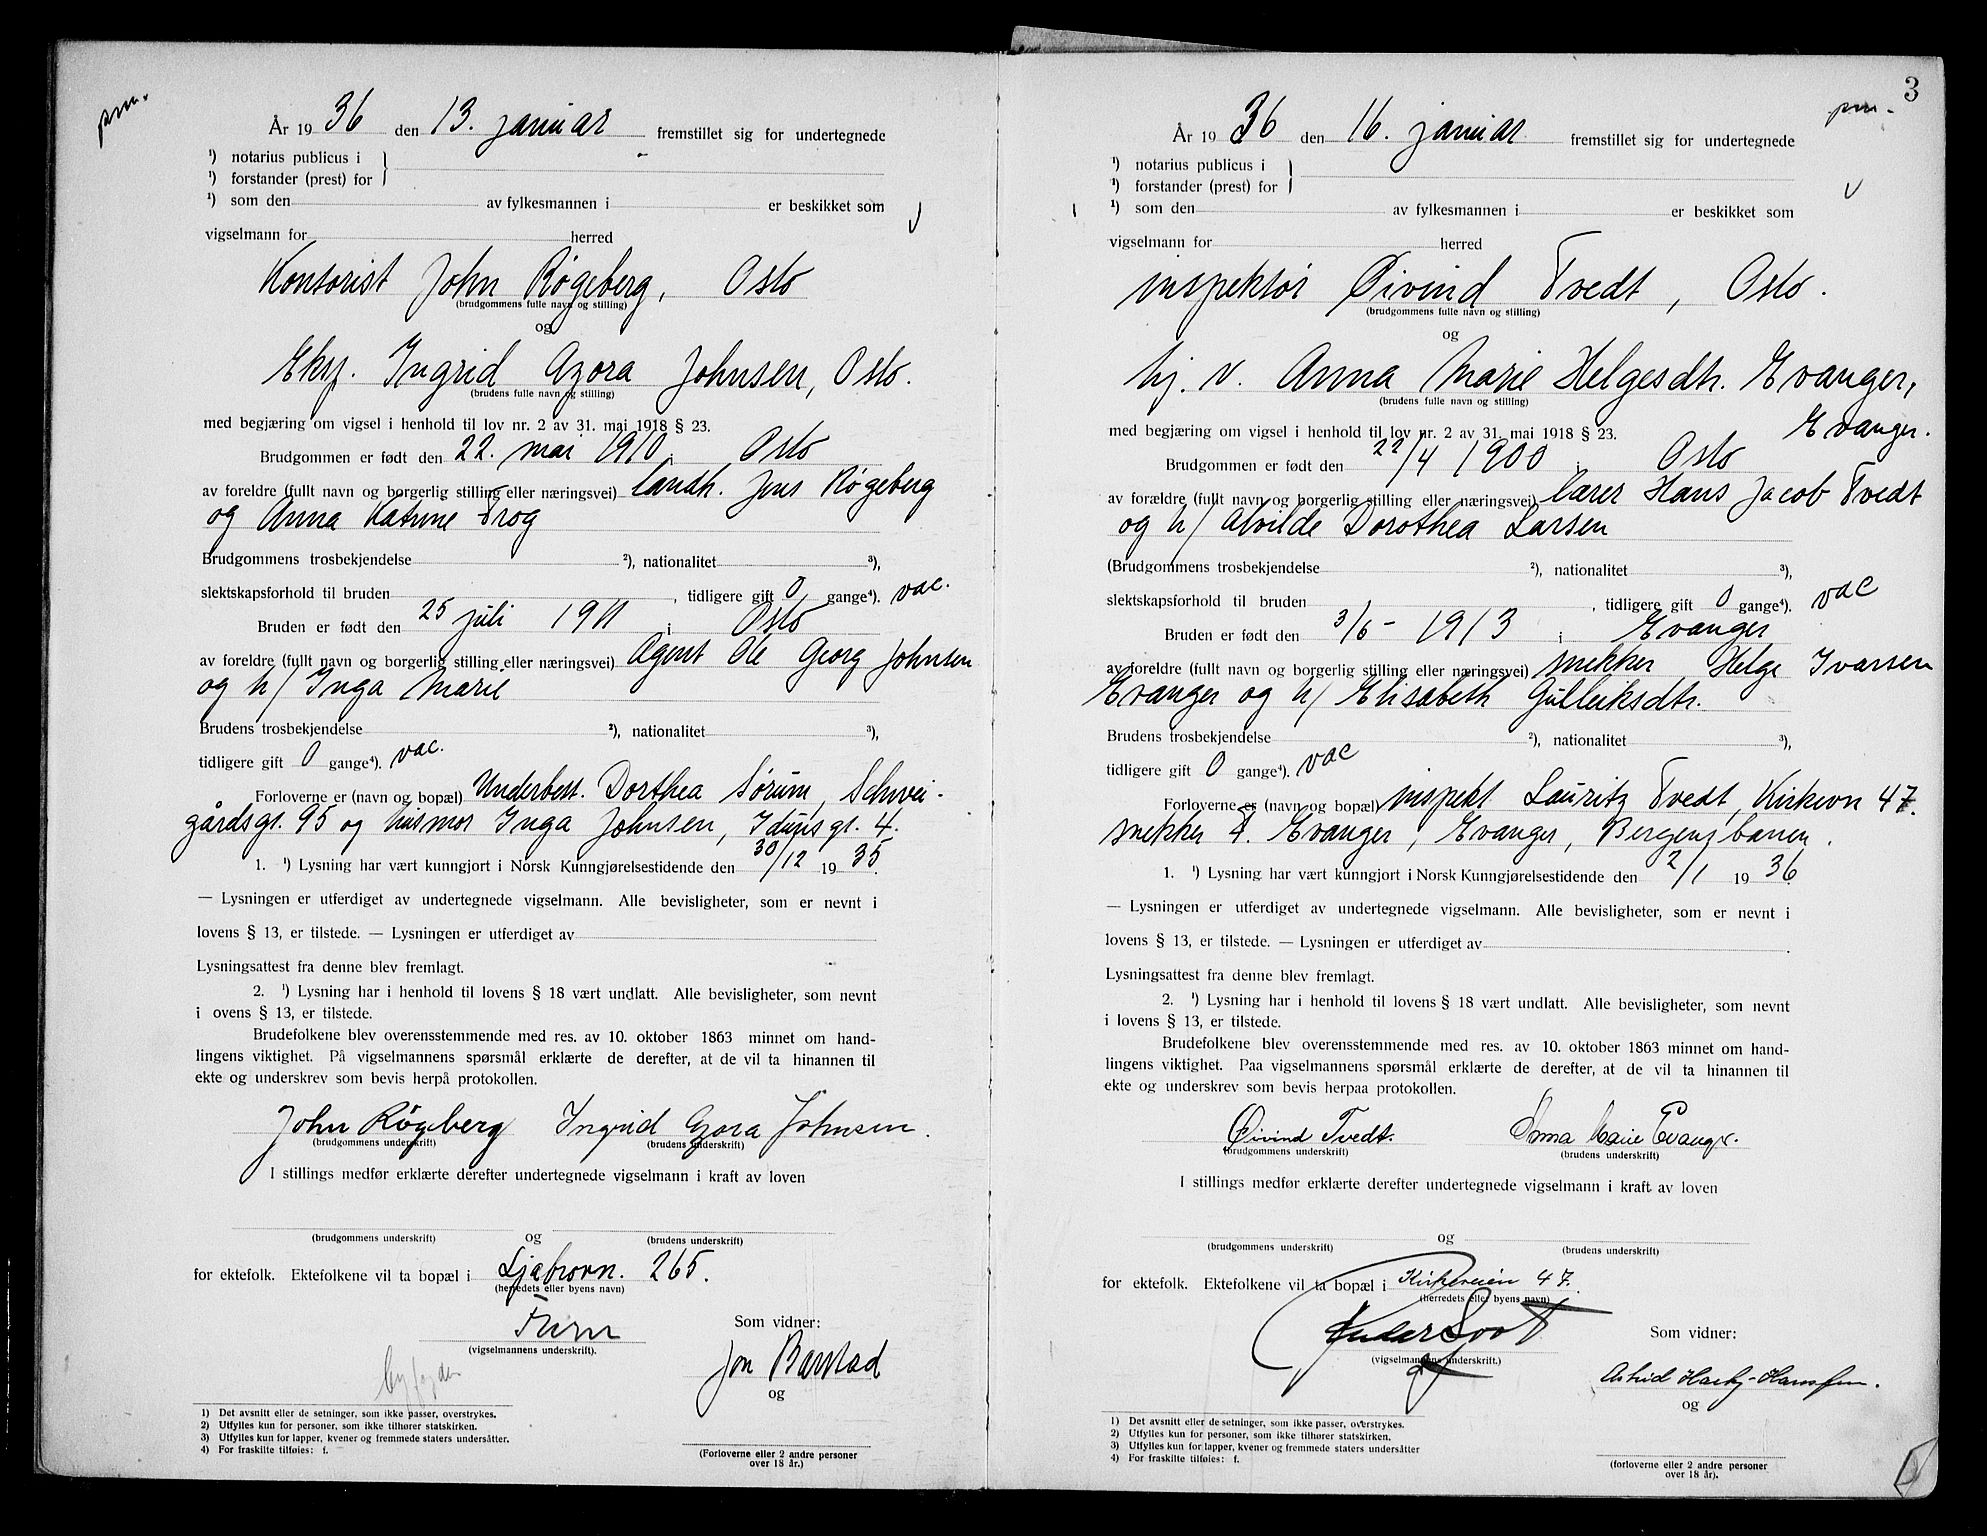 pm.
År 1936 den 13. januar fremstillet sig for undertegnede
¹) notarius publicus i
¹) forstander (prest) for
¹) som den av fylkesmannen i er beskikket som
vigselmann for herred
Kontorist John Røgeberg, Oslo
(brudgommens fulle navn og stilling)
og
Eksp. Ingrid Azora Johnsen, Oslo.
(brudens fulle navn og stilling)
med begjæring om vigsel i henhold til lov nr. 2 av 31. mai 1918 § 23.
Brudgommen er født den 22. mai 1910 i Oslo
av foreldre (fullt navn og borgerlig stilling eller næringsvei) landh. Jens Røgeberg
og Anna Katrine Frog
Brudgommens trosbekjendelse ²), nationalitet ³),
slektskapsforhold til bruden , tidligere gift 0 gange⁴). vac.
Bruden er født den 25 juli 1911 i Oslo
av foreldre (fullt navn og borgerlig stilling eller næringsvei) Agent Ole Georg Johnsen
og h/ Inga Marie
Brudens trosbekjendelse ²), nationalitet ³),
tidligere gift 0 gange⁴). vac.
Forloverne er (navn og bopæl) Underbest. Dorthea Sørum, Schwei-
gårdsgt. 95 og husmor Inga Johnsen, Iduns gt. 4.
1. ¹) Lysning har vært kunngjort i Norsk Kunngjørelsestidende den 30/12 1935.
— Lysningen er utferdiget av undertegnede vigselmann. Alle bevisligheter, som er nevnt i
lovens § 13, er tilstede. — Lysningen er utferdiget av
Lysningsattest fra denne blev fremlagt.
2. ¹) Lysning har i henhold til lovens § 18 vært undlatt. Alle bevisligheter, som nevnt
i ovens § 13, er tilstede.
Brudefolkene blev overensstemmende med res. av 10. oktober 1863 minnet om hand-
lingens viktighet. På vigselmannens spørsmål erklærte de derefter, at de vil ta hinannen til
ekte og underskrev som bevis herpå protokollen.
John Røgeberg Ingrid Azora Johnsen.
(brudgommens underskrift) (brudens underskrift)
I stillings medfør erklærte derefter undertegnede vigselmann i kraft av loven
og
(brudgommens underskrift) (brudens underskrift)
for ektefolk. Ektefolkene vil ta bopæl i Ljabrovn. 265.
(herredets eller byens navn)
Som vidner:
(vigselmannens underskrift).
Jon Barstad
byfogden
og
1) Det avsnitt eller de setninger, som ikke passer, overstrykes.
2) Utfylles kun for personer, som ikke tilhører statskirken.
3) Utfylles kun for lapper, kvener og fremmede staters undersåtter.
4) For fraskilte tilføies: f.
(Forloverne eller 2 andre personer
over 18 år.)
3
pm.
År 1936 den 16. januar fremstillet sig for undertegnede
¹) notarius publicus i
¹) forstander (prest) for
¹) som den av fylkesmannen i er beskikket som
vigselmann for herred
inspektør Øivind Tvedt, Oslo.
(brudgommens fulle navn og stilling)
og
hj. v. Anna Marie Helgesdtr. Evanger,
(brudens fulle navn og stilling)
med begjæring om vigsel i henhold til lov nr. 2 av 31. mai 1918 § 23. Evanger.
Brudgommen er født den 22/4 1900 i Oslo
av forældre (fullt navn og borgerlig stilling eller næringsvei) lærer Hans Jacob Tvedt
og h/ Alvilde Dorothea Larsen
(Brudgommens trosbekjendelse ²), nationalitet ³),
slektskapsforhold til bruden , tidligere gift 0 gange⁴). vac
Bruden er født den 3/6 - 1913 i Evanger
av foreldre (fullt navn og borgerlig stilling eller næringsvei) snekker Helge Ivarsen
Evanger og h/ Elisabeth Gulleiksdtr.
Brudens trosbekjendelse ²), nationalitet ³),
tidligere gift 0 gange⁴). vac
Forloverne er (navn og bopæl) inspekt. Lauritz Tvedt, Kirkevn 47.
snekker Evanger, Evanger, Bergensbanen.
1. ¹) Lysning har vært kunngjort i Norsk Kunngjørelsestidende den 2/1 1936.
— Lysningen er utferdiget av undertegnede vigselmann. Alle bevisligheter, som er nevnt i
lovens § 13, er tilstede. — Lysningen er utferdiget av
Lysningsattest fra denne blev fremlagt.
2. ¹) Lysning har i henhold til lovens § 18 vært undlatt. Alle bevisligheter, som nevnt
i lovens § 13, er tilstede.
Brudefolkene blev overensstemmende med res. av 10. oktober 1863 minnet om hand-
lingens viktighet. Paa vigselmannens spørsmål erklærte de derefter, at de vil ta hinannen til
ekte og underskrev som bevis herpaa protokollen.
Øivind Tvedt. Anna Marie Evanger.
(brudgommens underskrift) (brudens underskrift)
I stillings medfør erklærte derefter undertegnede vigselmann i kraft av loven
og
(brudgommens underskrift) (brudens underskrift)
for ektefolk. Ektefolkene vil ta bopæl i Kirkeveien 47.
(herredets eller byens navn)
Som vidner:
(vigselmannens underskrift.)
Astrid Harby-Hanssen.
og
1) Det avsnitt eller de setninger, som ikke passer, overstrykes.
2) Utfylles kun for personer, som ikke tilhører statskirken.
3) Utfylles kun for lapper, kvener og fremmede staters undersåtter
4) For fraskilte tilføies: f.
(forloverne eller 2 andre personer
over 18 år).